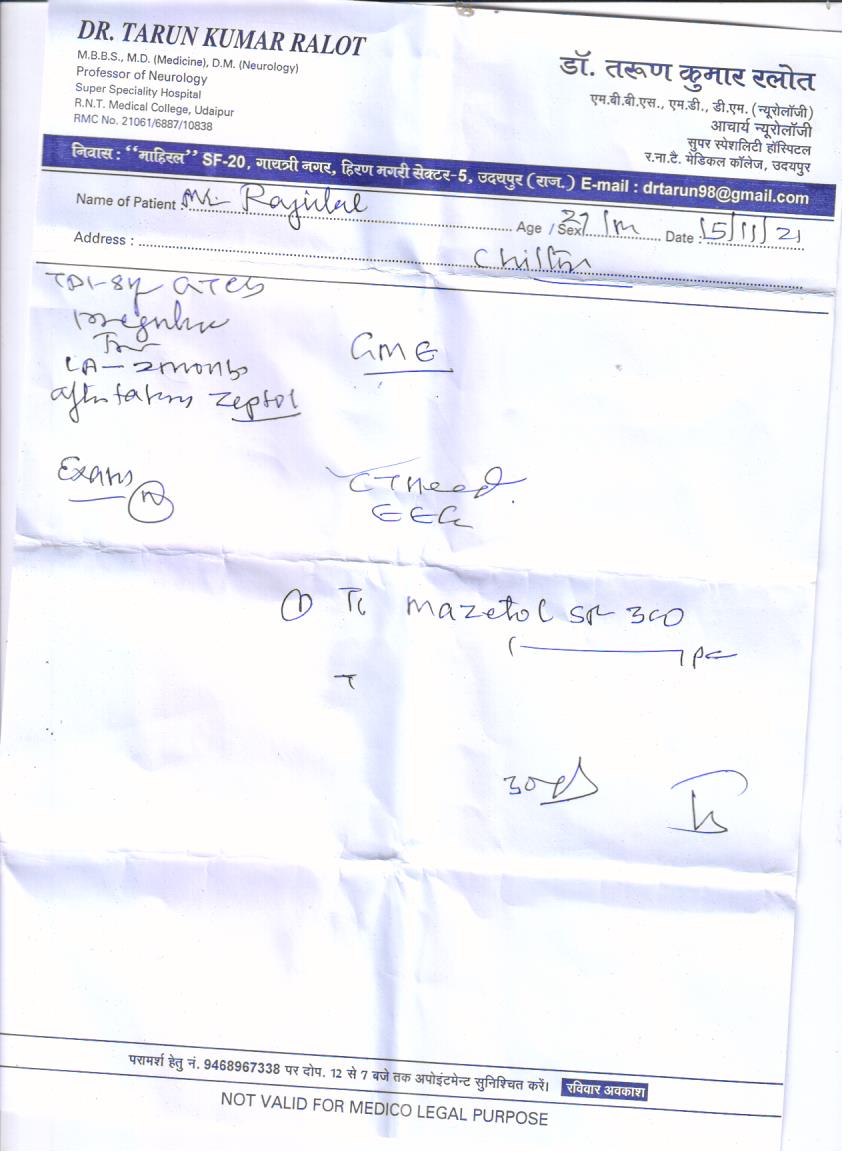 DR. TARUN KUMAR RALOT
M.B.B.S., M.D. (Medicine), D.M. (Neurology)
Professor of Neurology
Super Speciality Hospital
R.N.T. Medical College, Udaipur
RMC No. 21061/6887/10838
डॉ. तरूण कुमार रलोत
एम.बी.बी.एस., एम.डी., डी.एम. (न्यूरोलॉजी)
आचार्य न्यूरोलॉजी
सुपर स्पेशलिटी हॉस्पिटल
र.ना.टै. मेडिकल कॉलेज, उदयपुर
निवास : "माहिरल" SF-20, गायत्री नगर, हिरण मगरी सेक्टर-5, उदयपुर (राज.) E-mail : drtarun98@gmail.com
Name of Patient : Mr Rajulal Age / Sex 27/m Date : 15/11/21
Address :
GTCS
Irregular
LA - 2 months
after taking Zeptol
GME
Exam N
CT head
EEG
① Mazetol SR 300
1 1 pc
30
परामर्श हेतु नं. 9468967338 पर दोप. 12 से 7 बजे तक अपोइंटमेन्ट सुनिश्चित करें। रविवार अवकाश
NOT VALID FOR MEDICO LEGAL PURPOSE